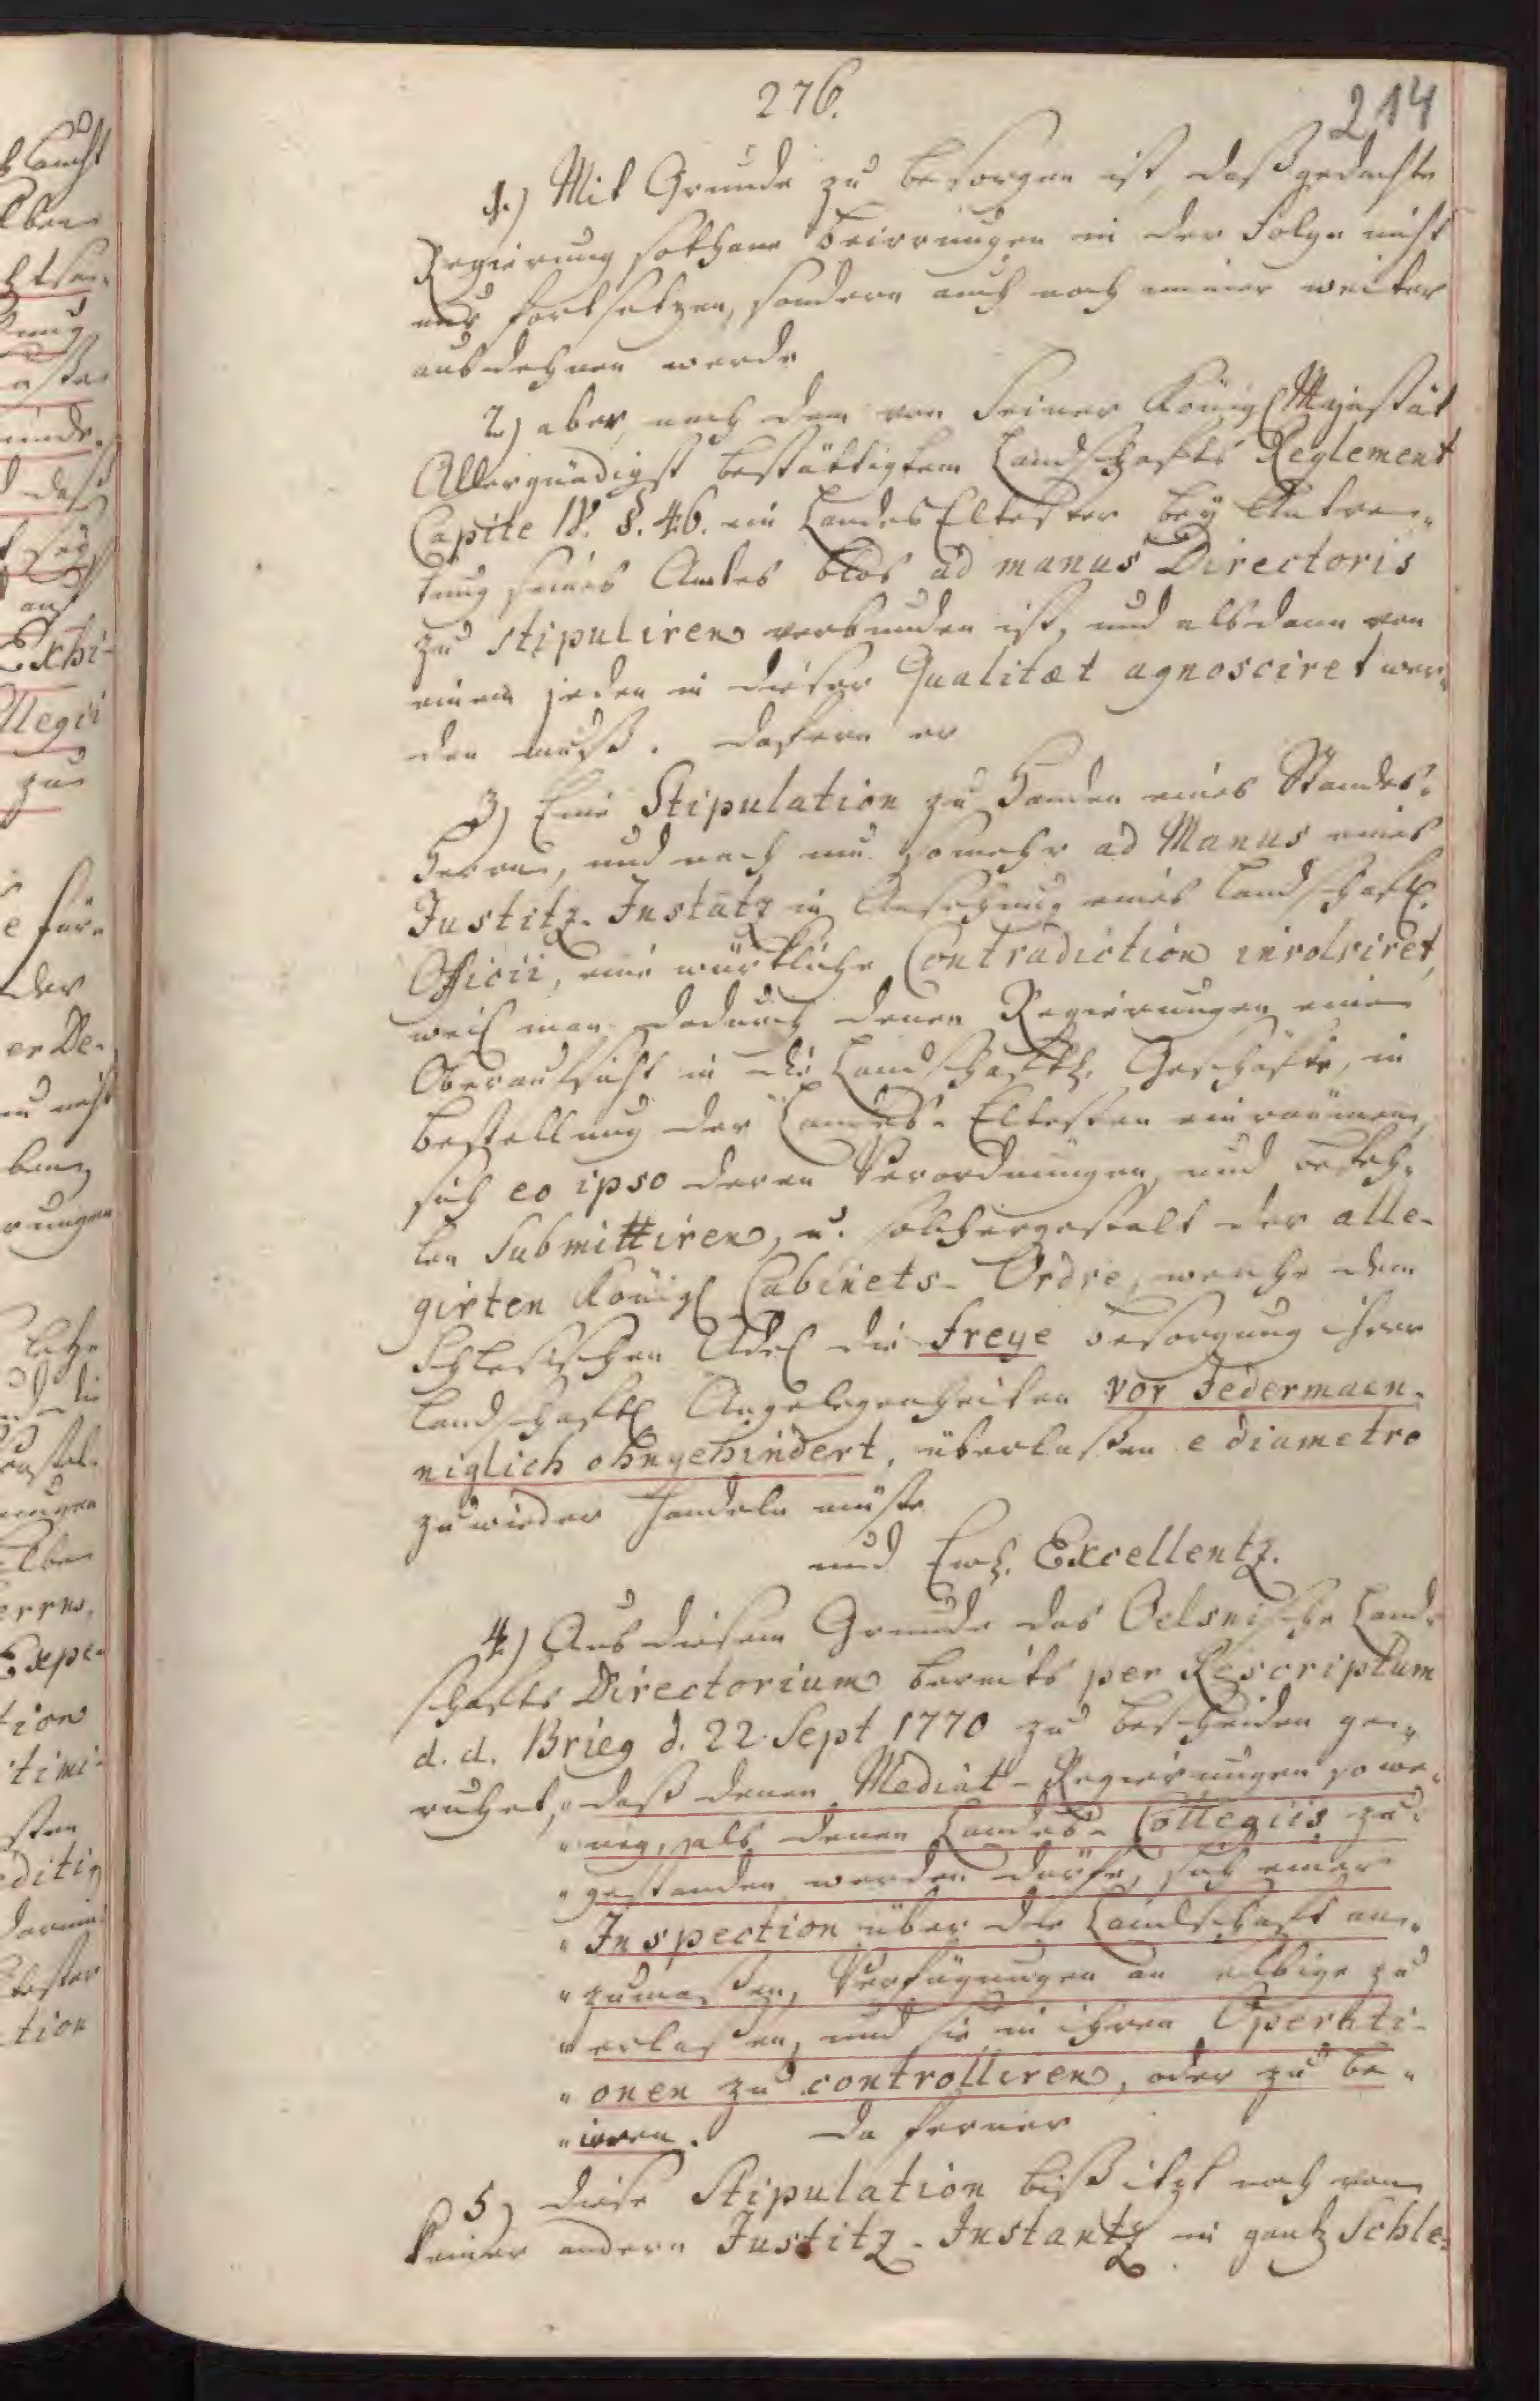 276.
214
1.) Mit Grunde zu besorgen ist, daß gedachte
Regierung sothane Beirrungen in der Folge nicht
nur fortsetzen, sondern auch noch immer weiter
ausdehnen werde
2.) aber, nach dem von Seiner Königl Majestät
Allergnädigst bestättigtem Landschafts Reglement
Capite IV. §. 46. ein Landes Eltester bey Antre-
tung seines Amtes blos ad manus Directoris
zu stipuliren verbunden ist, und alsdann von
einem jeden in dieser Qualitæt agnosciret wer-
den muß. dafern er
3) Eine Stipulation zu Handen eines Standes-
Herrn, und noch um somehr ad Manus eines
Justitz-Instatz in Ansehung eines Landschaftl.
Officii, eine würkliche Contradiction involviret,
weil man dadurch denen Regierungen eine
Oberaufsicht in die Landschaftl. Geschäfte, in
Bestellung der Landes-Eltesten einräumen,
sich eo ipso deren Verordnungen, und Befeh-
len Submittiren, u. solchergestalt der alle-
girten Königl Cabinets-Ordre, welche dem
Schlesischen Adel die freye Besorgung ihrer
Landschaftl Angelegenheiten vor Jedermaen-
niglich ohngehindert, überlaßen e diametro
zuwieder handeln müste
und Ewl. Excellentz.
4.) Aus diesem Grunde das Oelsnische Land-
schafts Directorium bereits per Rescriptum
d. d. Brieg d. 22. Sept 1770 zu bescheiden ge-
ruhet, „daß denen Mediat-Regierungen so we-
„nig, als denen Landes-Collegiis zu-
„gestanden werden dörfe, sich einer
„Inspection über die Landschaft an-
„zumaßen, Verfügungen an selbige zu
„erlaßen, und sie in ihren Operati-
„onen zu controlliren, oder zu be-
„irren. Da ferner
5) diese Stipulation biß itzt noch von
keiner andern Justitz-Instantz in gantz Schle-